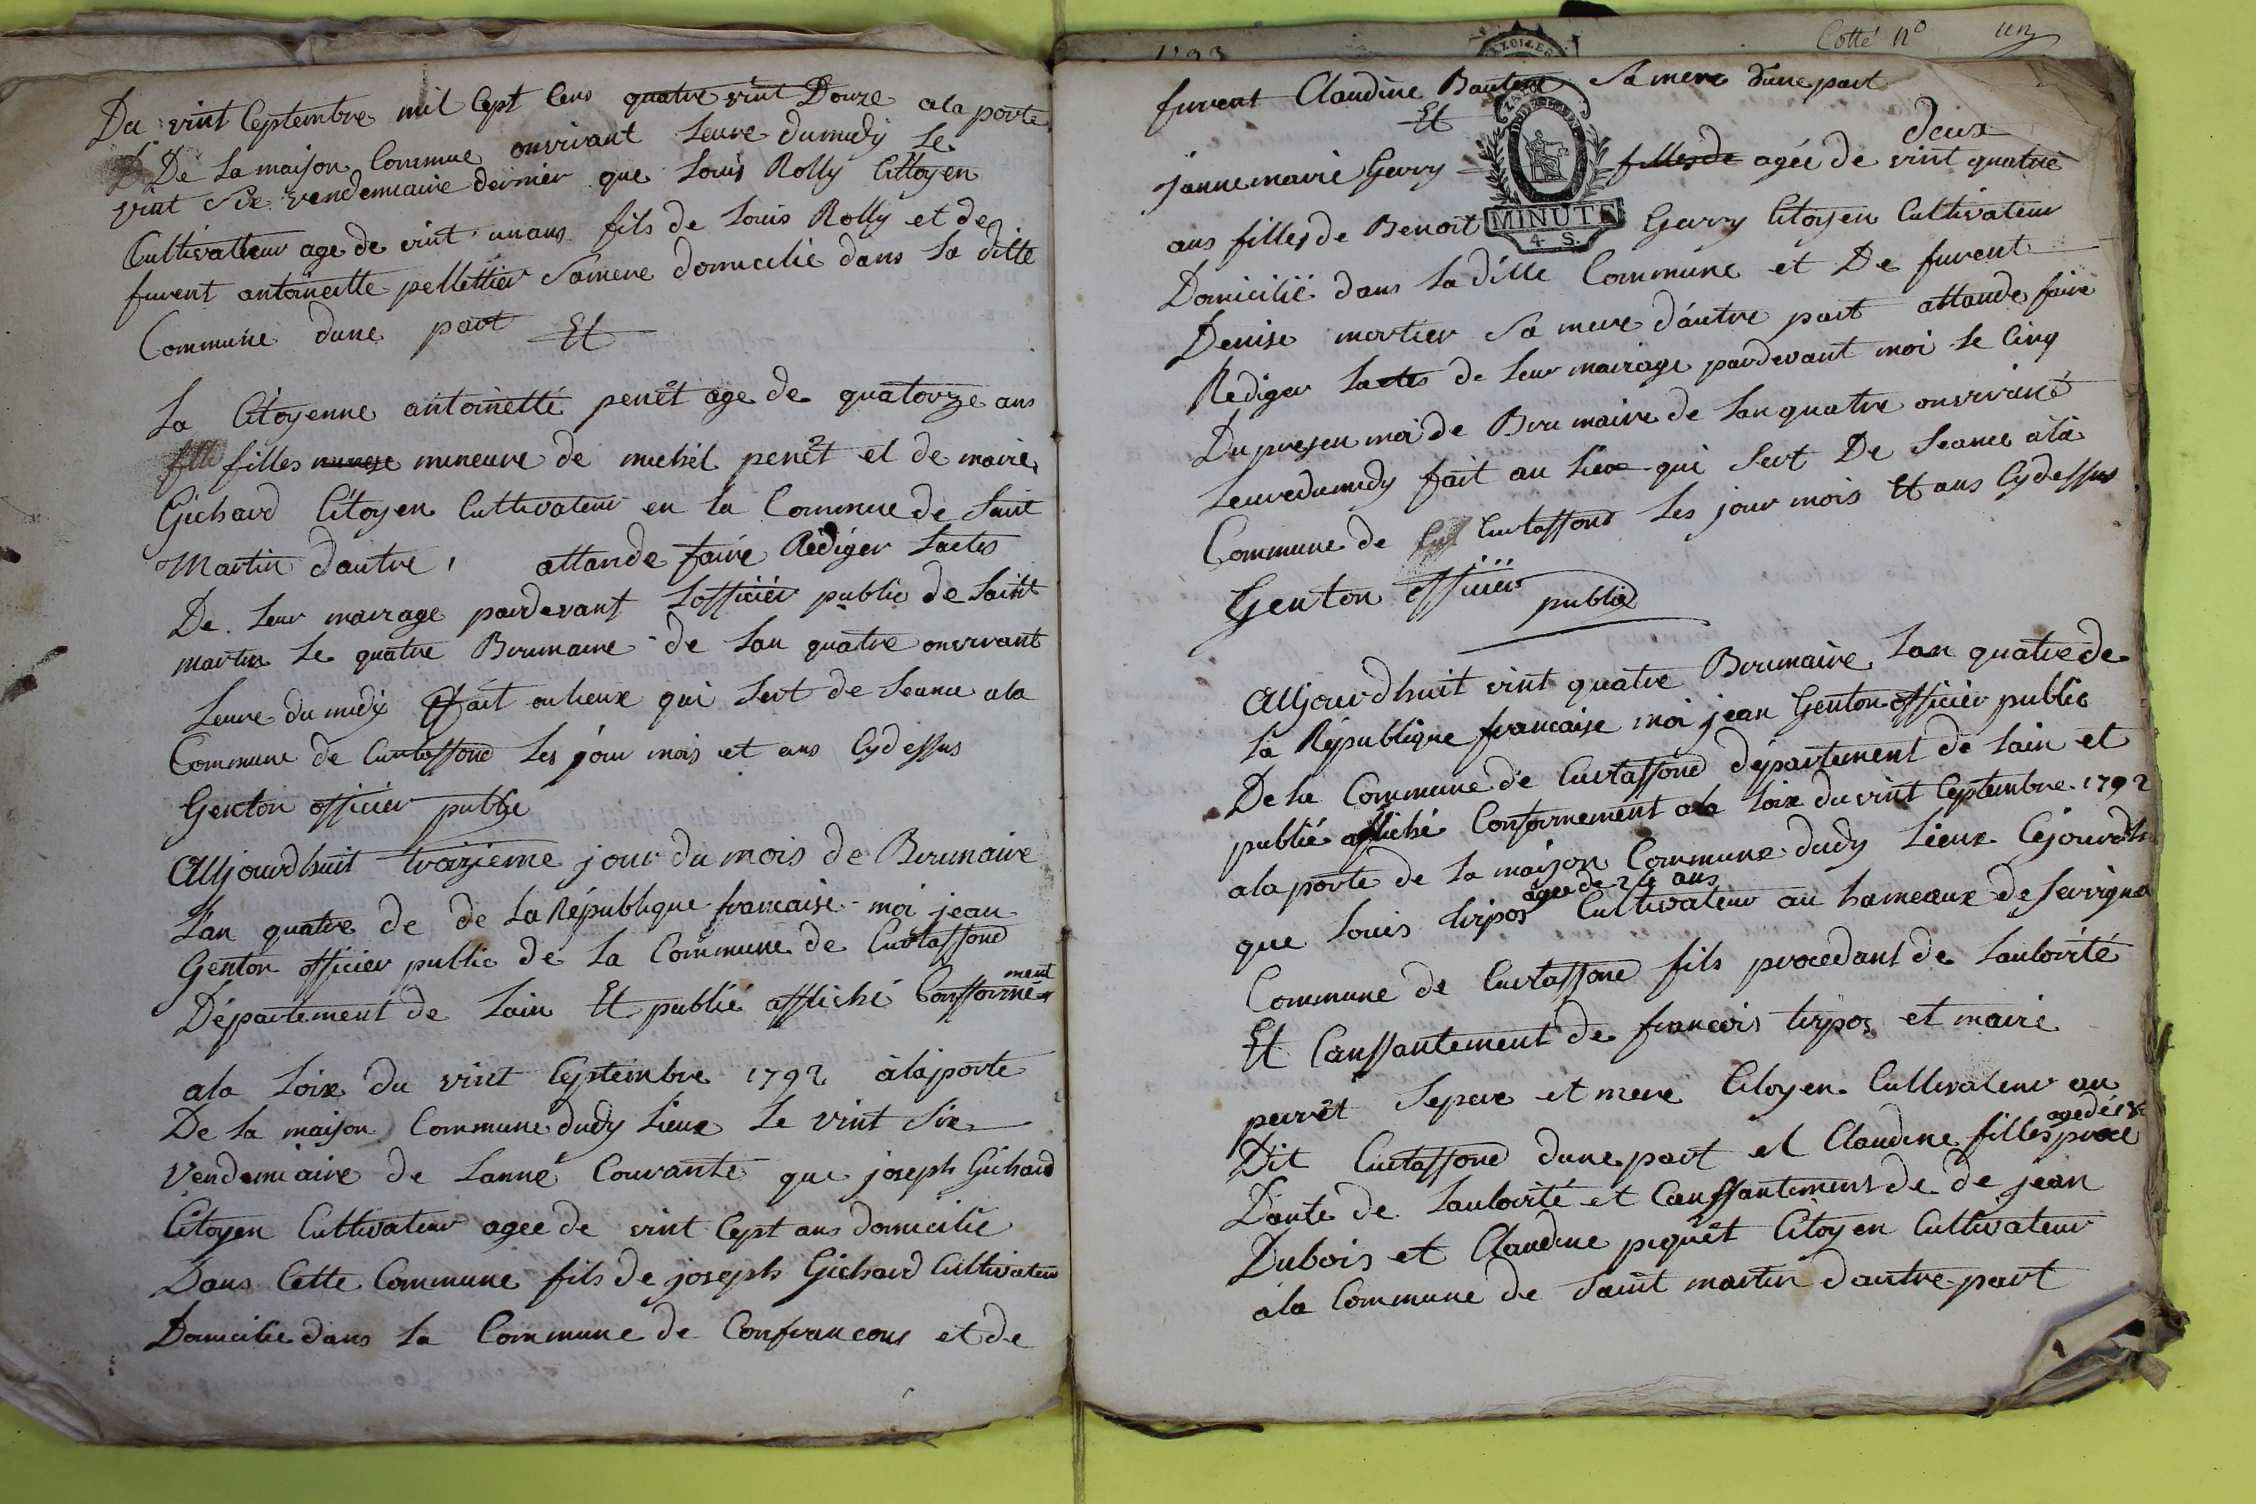 Du vint Ceptembre mil Cept Cens quatre vint Douze ala porte
De la maison Commue onvirant Leure dumidy Le
vint Six vendemiaire dernier que Louis Rolly Cittoyen
Cultivatteur age de vint un ans fils de Louis Rolly et de
furent antoinette pellettier Samere domicilié dans la ditte
Commune dune part Et
La Citoyenne antoinette penêt age de quatorze ans
filles mineure de michél penêt et de marie
Gichard Citoyen Cultivateur en la Commue de Saint
Martin dautre, attande faire Rédiger Lactes
De Leur mairage pardevant Lofficiér public de Saint
martin Le quatre Brumaire de Lan quatre onvirant
Leure du midy fait au lieux qui Sert de Seance ala
Commune de Curtaffond Les jour mois et ans Cydessus
Genton officier public
AUjourdhuit troizieme jour du mois de Brumaire
Lan quatre de de La République francaise moi jean
Genton officier public de La Commune de Curtaffond
Département de Lain Et publié affiché Confformé-
ment
ala Loix du vint Ceptembre 1792 àlaporte
De la maison Commune dudy Lieux Le vint Six
Vendemiaire de Lanné Courante que joseph Gichard
Citoyen Cultivateur agee de vint Cept ans domicilié
Dans Cette Commune fils de joseph Gichard Cultivateur
Domicilie dans la Commune de Confrancons et de
1793
Cotté n° un
furent Claudine Sa mere dune part
Et
deux
janne marie Gerry filles de agée de vint quatre
MINUTE
4 S.
ans filles de Benoit Gerry Citoyen Cultivateur
Domicilié dans La ditte Commune et De furent
Denise mortier Sa mere dautre part attande faire
Rediger Lactes de Leur mairage pardevant moi Le Cinq
Du presen moi de Brumaire de Lan quatre onvirant
Leuredumidy fait au Lieux qui Sert De Seance àla
Commune de Curtaffond Les jour mois Et ans Cydessus
Genton officier
public
AUjourdhuit vint quatre Brumaire Lan quatre de
La République francaise moi jean Genton officier public
De La Commune de Curtaffond département de Lain et
publié affiché Conformement ala Loix du vint Ceptembre 1792
ala porte de la maison Commune dudy Lieux Cejourdh
agee de 24 ans
que Louis tirpos Cultivateur au hameaux de
Commune de Curtaffond fils procedant de Lautoirté
Et Canssantement de francois tirpos et marie
perrêt Sepere et mere Citoyen Cultivateur au
agede 18
Dit Curtaffond dune part et Claudine filles proce
Dante de Lautoirté et Canssantement de de jean
Dubois et Claudine piquêt Citoyen Cultivateur
àla Commune de Saint martin dautre part